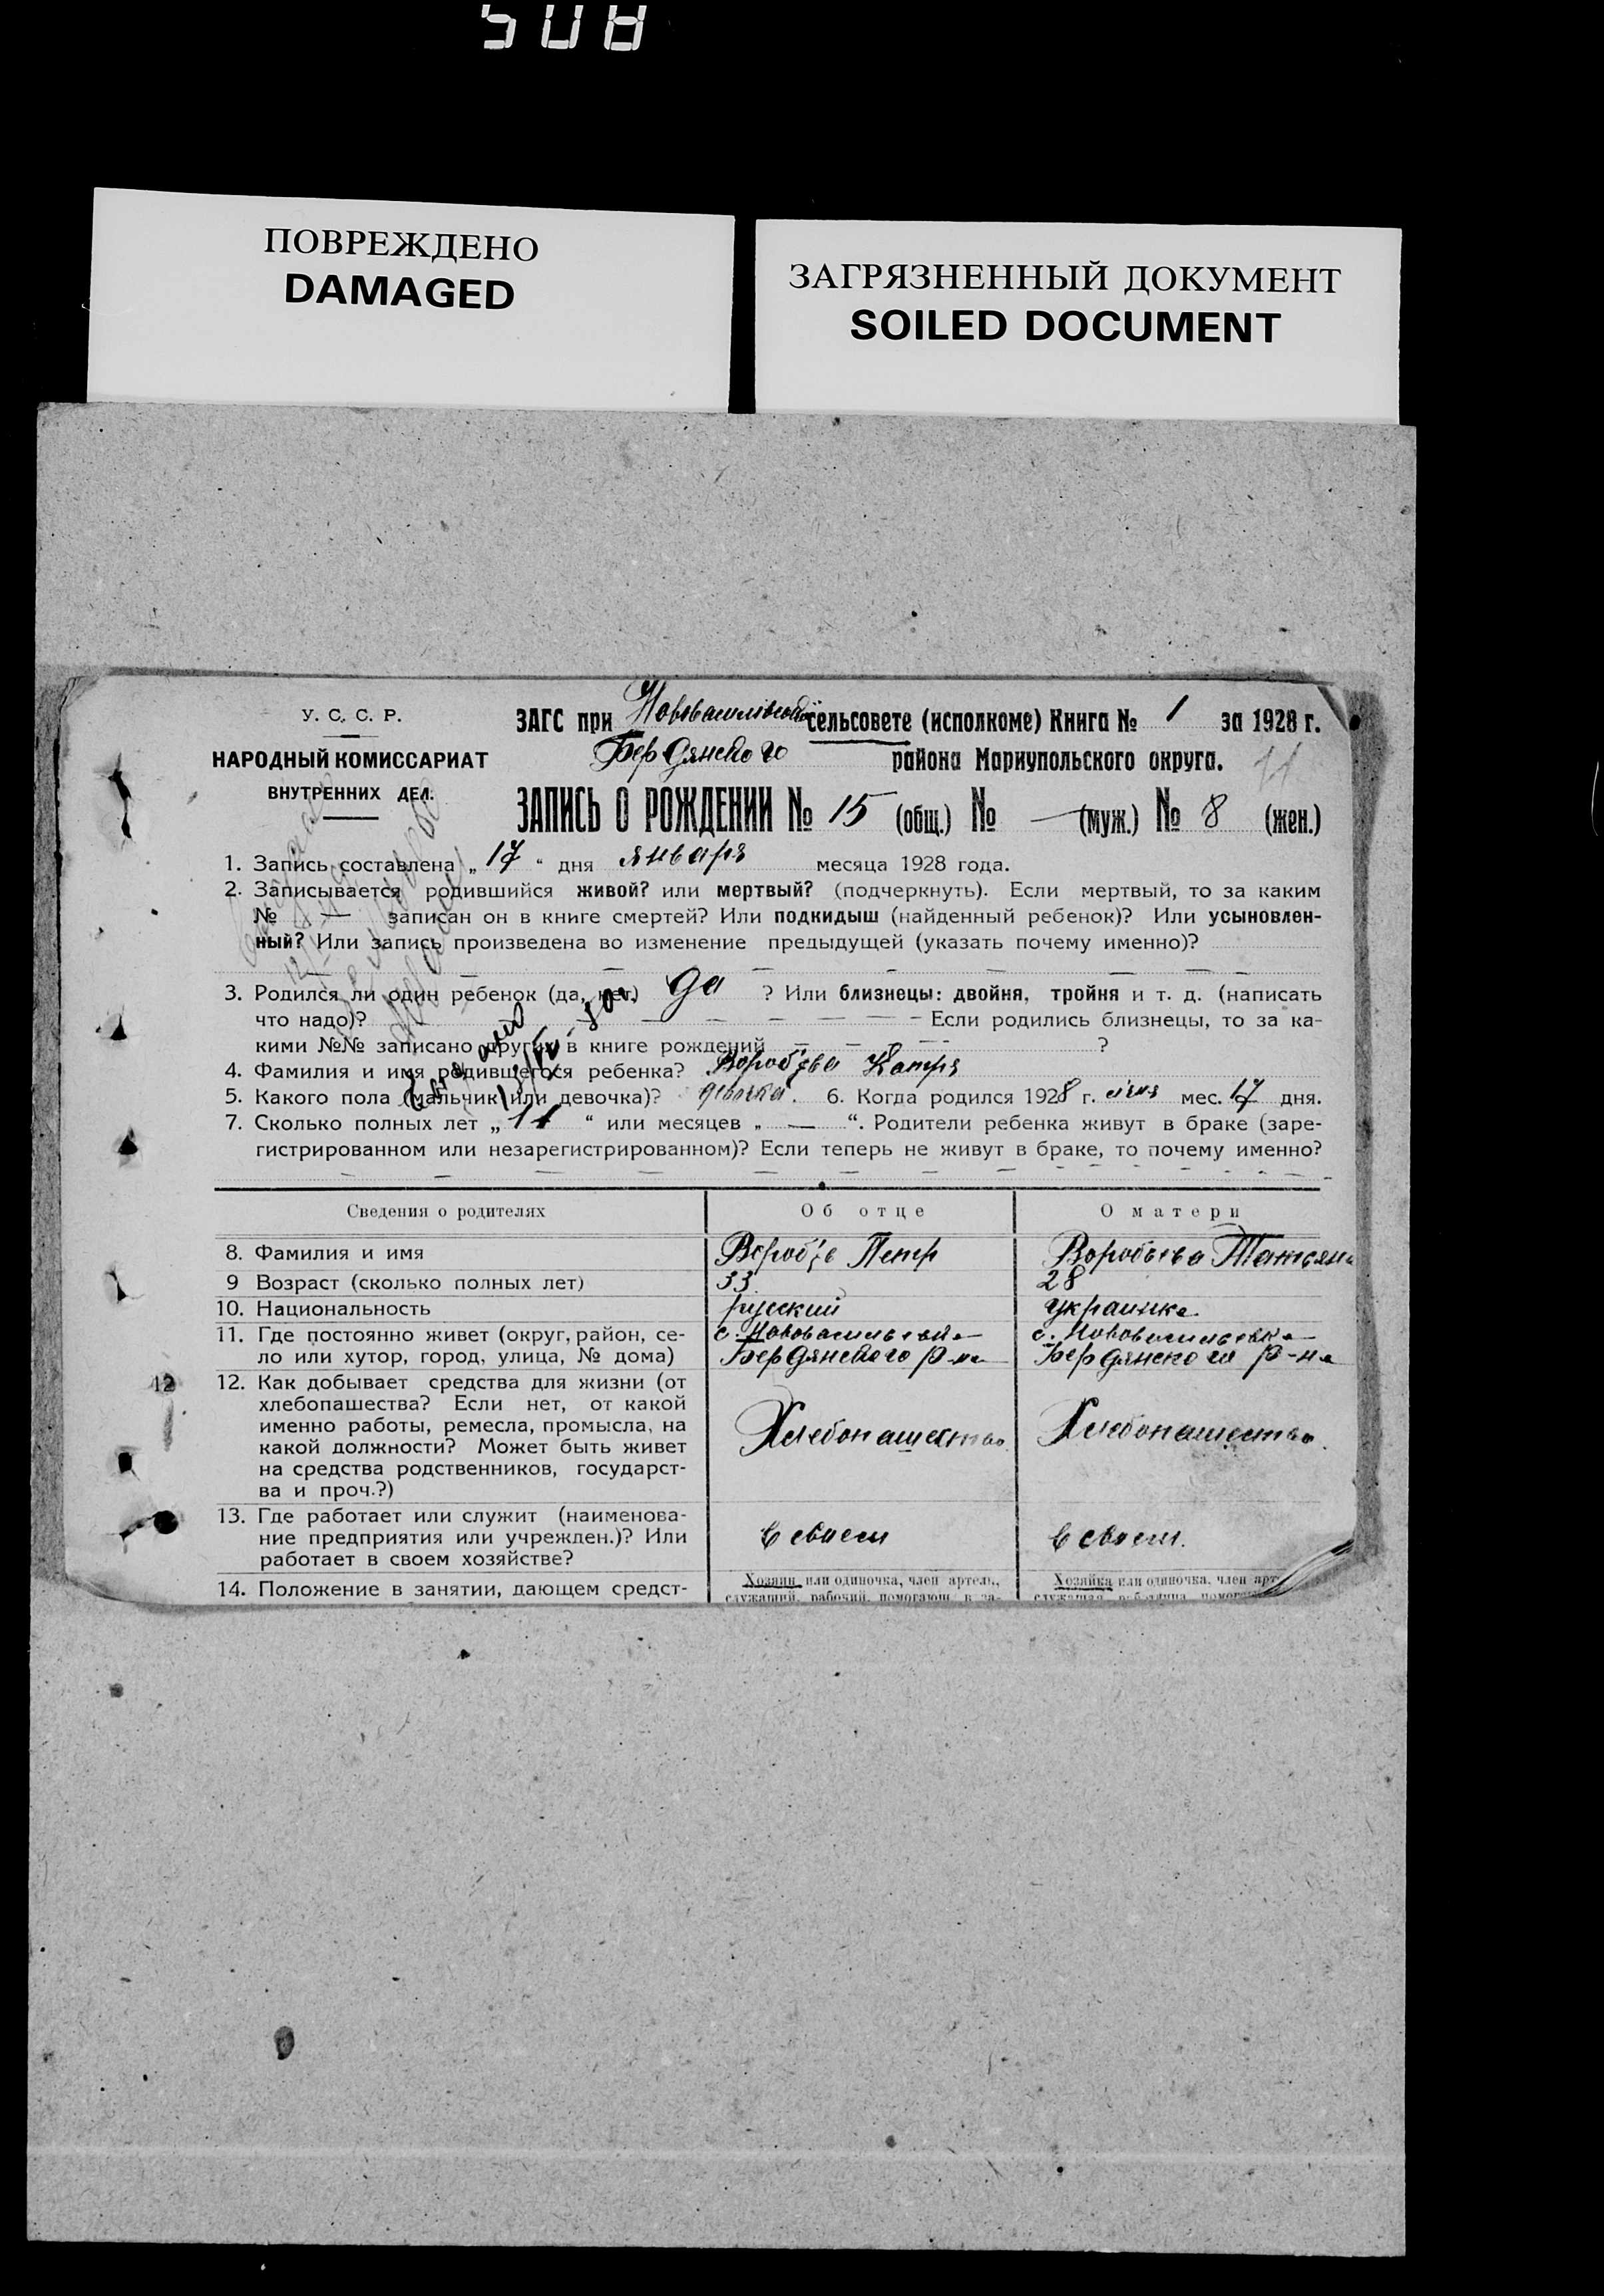 508
ПОВРЕЖДЕНО
DAMAGED
ЗАГРЯЗНЕННЫЙ ДОКУМЕНТ
SOILED DOCUMENT
У. С. С. Р.
НАРОДНЫЙ КОМИССАРИАТ
ВНУТРЕННИХ ДЕЛ.
ЗАГС при сельсовете (исполкоме) Книга № 1 за 1928 г.
Бердянского района Мариупольского округа.
11
ЗАПИСЬ О РОЖДЕНИИ № 15 (общ.) № — (муж.) № 8 (жен.)
1. Запись составлена „ 17 “ дня января месяца 1928 года.
2. Записывается родившийся живой? или мертвый? (подчеркнуть). Если мертвый, то за каким
№ — записан он в книге смертей? Или подкидыш (найденный ребенок)? Или усыновлен-
ный? Или запись произведена во изменение предыдущей (указать почему именно)?
3. Родился ли один ребенок (да, нет) да ? Или близнецы: двойня, тройня и т. д. (написать
что надо)? — — — — — — Если родились близнецы, то за ка-
кими №№ записано других в книге рождений — — — ?
4. Фамилия и имя родившегося ребенка? Вороб'ева Катря
5. Какого пола (мальчик или девочка)? девочка. 6. Когда родился 1928 г. мес. 17 дня.
7. Сколько полных лет „ 11 “ или месяцев „ — “. Родители ребенка живут в браке (заре-
гистрированном или незарегистрированном)? Если теперь не живут в браке, то почему именно?
Сведения о родителях Об отце О матери
8. Фамилия и имя Вороб'ев Петр Воробьева Татьяна
9 Возраст (сколько полных лет) 33 28
10. Национальность русский украинка
11. Где постоянно живет (округ, район, се- с. Нововасильевка с. Нововасильевка
ло или хутор, город, улица, № дома) Бердянского р-на Бердянского р-на
12
12. Как добывает средства для жизни (от
хлебопашества? Если нет, от какой
именно работы, ремесла, промысла, на Хлебопашество Хлебопашество
какой должности? Может быть живет
на средства родственников, государст-
ва и проч.?)
13. Где работает или служит (наименова-
ние предприятия или учрежден.)? Или в своем в своем.
работает в своем хозяйстве?
14. Положение в занятии, дающем средст- Хозяин или одиночка, член артель, Хозяйка или одиночка, член арт
служащий, рабочий, помогающ. в за- служащая, работница, помога